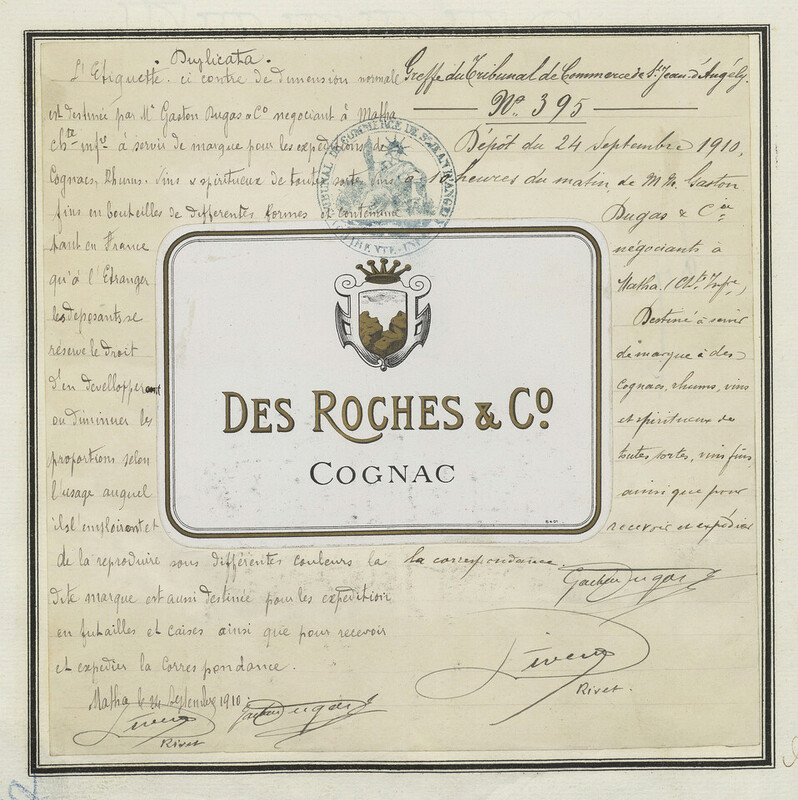 Duplicata.
L'Etiquette ci contre de dimension normale
est destinée par Mr Gaston Dugas & Co négociant à Matha
Chte Infre à servir de marque pour les expéditions de
Cognacs, Rhums, Vins & spiritueux de toutes sortes vins
fins en bouteilles de différentes formes et contenance
tant en France
qu'à l'Etranger
les déposants se
réserve le droit
d'en developper
ou diminuer les
proportions selon
l'usage auquel
ils l'emploiront et
de la reproduire sous différentes couleurs la
dite marque est aussi destinée pour les expéditions
en futailles et caises ainsi que pour recevoir
et expédier la Correspondance.
Matha le 24 Septembre 1910.
Gaston Dugas
Rivet
Greffe du Tribunal de Commerce de St Jean d'Angély.
No. 395
Dépôt du 24 Septembre 1910,
à 10 heures du matin, de MM. Gaston
Dugas & Cie
négociants à
Matha. (Chte Infre)
Destiné à servir
de marque à des
Cognacs, rhums, vins
et spiritueux de
toutes sortes, vins fins,
ainsi que pour
recevoir et expédier
la correspondance.
Gaston Dugas
Rivet.
TRIBUNAL DE COMMERCE DE St JEAN D'ANGELY
CHARENTE-INF
DES ROCHES & Co
COGNAC